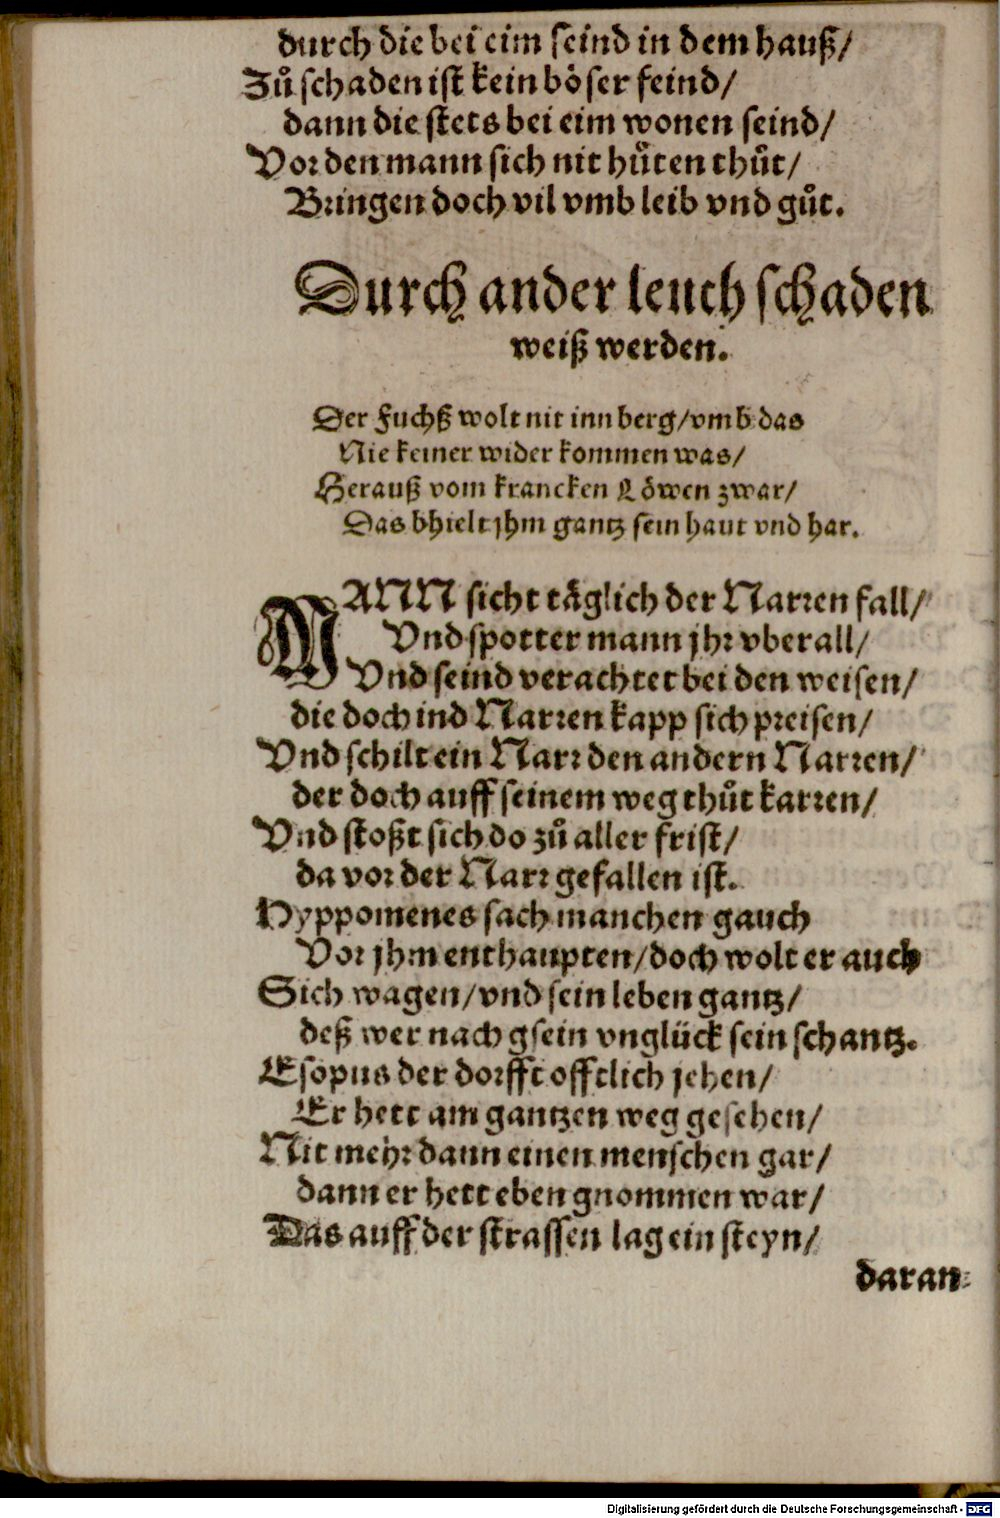 durch die bei eim seind in dem hauß/
Zů schaden ist kein böser feind/
dann die stets bei eim wonen seind/
Vor den mann sich nit hůten thůt/
Bringen doch vil vmb leib vnd gůt.
Durch ander leuth schaden
weiß werden.
Der Fuchß wolt nit inn berg/vmb das
Nie keiner wider kommen was/
Herauß vom krancken Löwen zwar/
Das bhielt jhm gantz sein haut vnd har.
MANN sicht täglich der Narren fall/
Vnd spottet mann jhr vberall/
Vnd seind verachtet bei den weisen/
die doch ind Narren kapp sich preisen/
Vnd schilt ein Narr den andern Narren/
der doch auff seinem weg thůt karren/
Vnd stoßt sich do zů aller frist/
da vor der Narr gefallen ist.
Hyppomenes sach manchen gauch
Vor jhm enthaupten/doch wolt er auch
Sich wagen/vnd sein leben gantz/
deß wer nach gsein vnglück sein schantz.
Esopus der dorfft offtlich jehen/
Er hett am gantzen weg gesehen/
Nit mehr dann einen menschen gar/
dann er hett eben gnommen war/
Das auff der strassen lag ein steyn/
daran
Digitalisierung gefördert durch die Deutsche Forschungsgemeinschaft - DFG